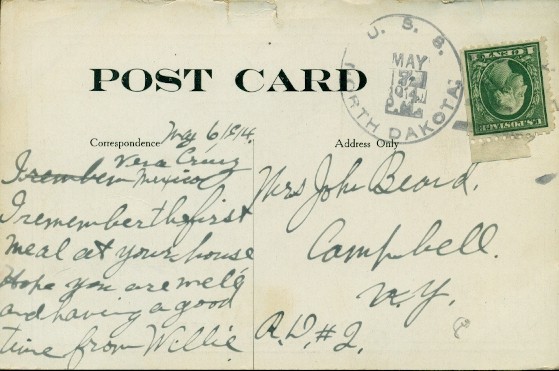 POST CARD
U. S. S.
NORTH DAKOTA
MAY
1914
Correspondence
Address Only
May 6, 1914.
Vera Cruz
Mexico
I remember
I remember the first
meal at your house
Hope you are well
and having a good
time from Willie
Mrs John Beard.
Campbell.
N.Y.
R.D. #2.